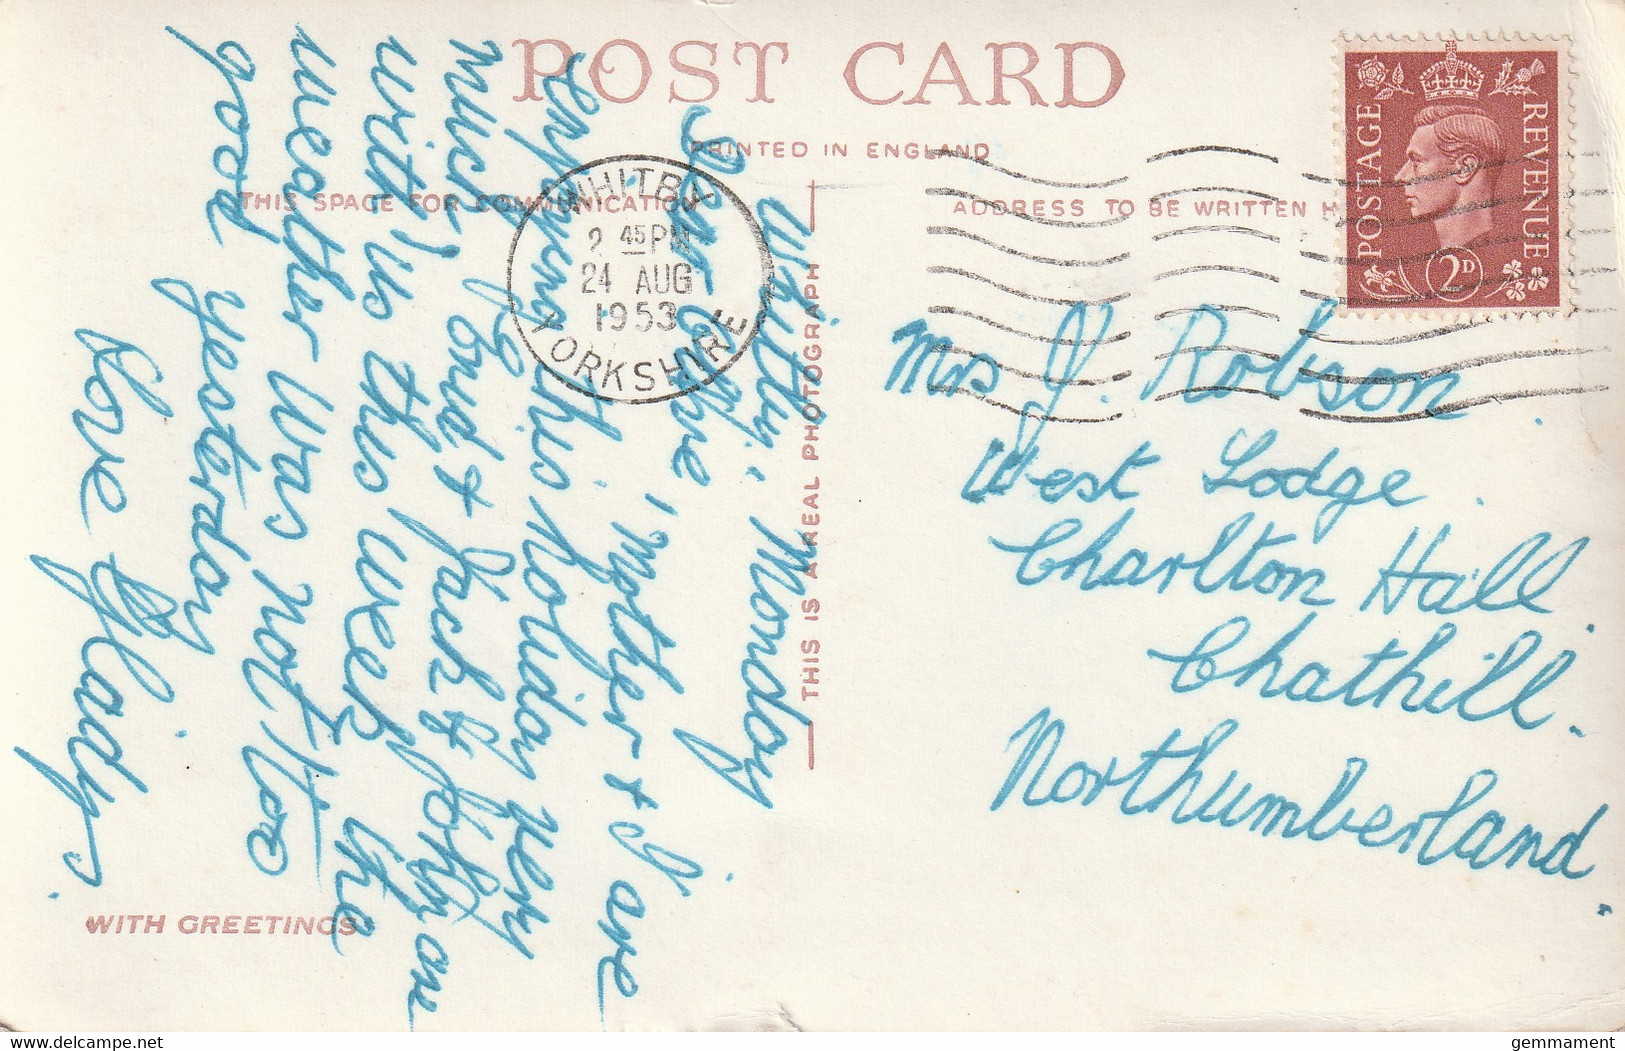 POST CARD
PRINTED IN ENGLAND
THIS SPACE FOR COMMUNICATION
ADDRESS TO BE WRITTEN H
THIS IS A REAL PHOTOGRAPH
WITH GREETINGS
POSTAGE REVENUE
2D
WHITBY
2 45 PM
24 AUG
1953
YORKSHIRE
Whitby. Monday
Dear , Mother & I are
enjoying this holiday very
much. & Jack & John are
with us this week the
weather was not too
good yesterday
Love Gladys.
Mrs J. Robson
West Lodge.
Charlton Hall
Chathill.
Northumberland.
delcampe.net
gemmament